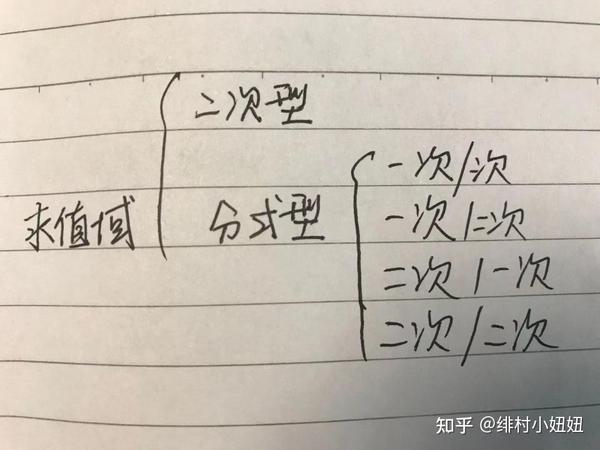 求值域
二次型
分式型
一次/二次
一次/二次
二次/一次
二次/二次
知乎 @绯村小妞妞